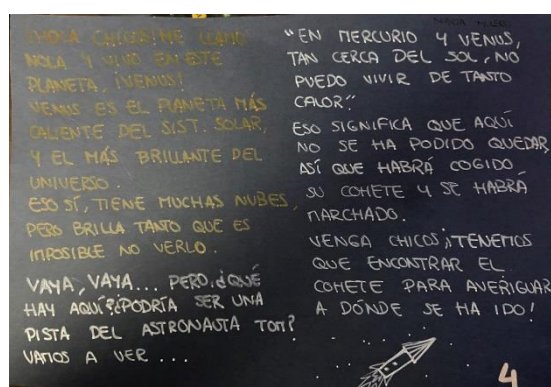 ¡HOLA CHICOS! ME LLAMO
NOLA Y VIVO EN ESTE
PLANETA, ¡VENUS!
VENUS ES EL PLANETA MÁS
CALIENTE DEL SIST. SOLAR,
Y EL MÁS BRILLANTE DEL
UNIVERSO.
ESO SÍ, TIENE MUCHAS NUBES,
PERO BRILLA TANTO QUE ES
IMPOSIBLE NO VERLO.
VAYA, VAYA... PERO, ¿QUÉ
HAY AQUÍ? ¿PODRÍA SER UNA
PISTA DEL ASTRONAUTA TOM?
VAMOS A VER...
"EN MERCURIO Y VENUS,
TAN CERCA DEL SOL, NO
PUEDO VIVIR DE TANTO
CALOR."
ESO SIGNIFICA QUE AQUÍ
NO SE HA PODIDO QUEDAR,
ASÍ QUE HABRÁ COGIDO
SU COHETE Y SE HABRÁ
MARCHADO.
VENGA CHICOS, ¡TENEMOS
QUE ENCONTRAR EL
COHETE PARA AVERIGUAR
A DÓNDE SE HA IDO!
4